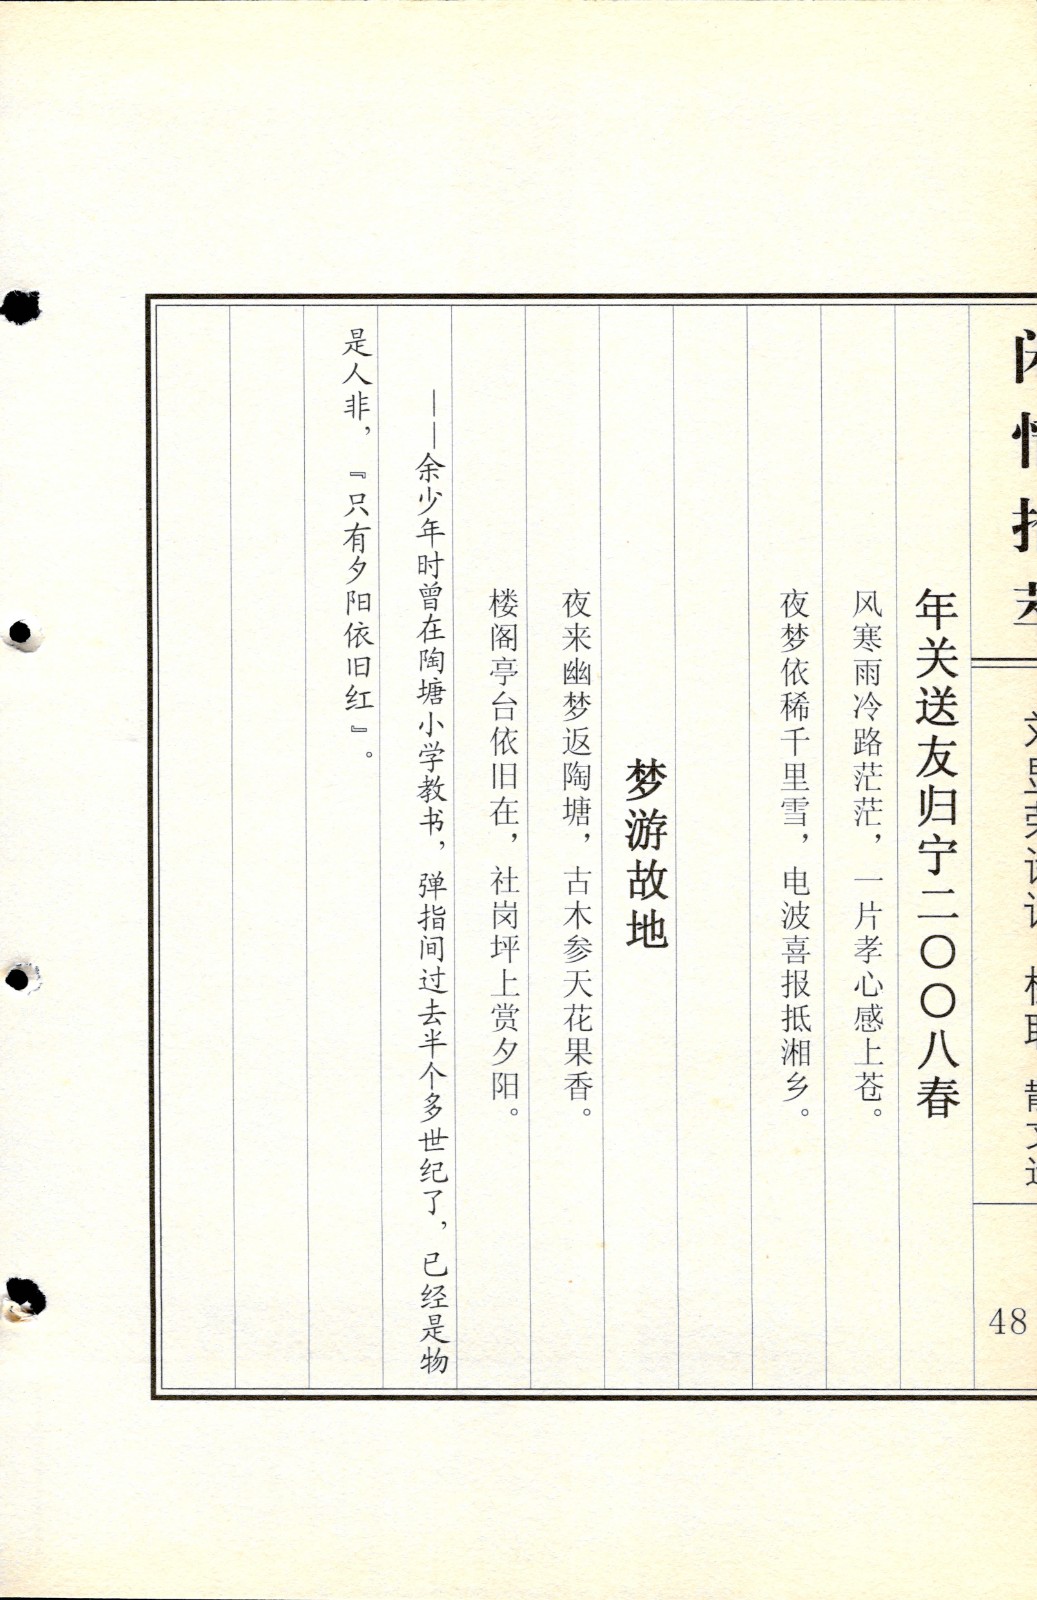 48
年关送友归宁二〇〇八春
风寒雨冷路茫茫，一片孝心感上苍。
夜梦依稀千里雪，电波喜报抵湘乡。
梦游故地
夜来幽梦返陶塘，古木参天花果香。
楼阁亭台依旧在，社岗坪上赏夕阳。
——余少年时曾在陶塘小学教书，弹指间过去半个多世纪了，已经是物
是人非，『只有夕阳依旧红』。